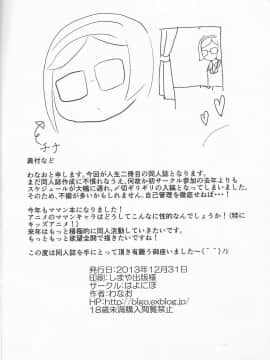 チナ
奥付など
わなおと申します。今回が人生二冊目の同人誌となります。
まだ同人誌作成に不慣れなうえ、何故か初サークル参加の去年よりも
スケジュールが大幅に遅れ、〆切ギリギリの入稿となってしまいました。
そのため、不備が多いかもしれません、自己管理を徹底せねば・・・！
今年もママン本になりました！
アニメのママンキャラはどうしてこんなに性的なんでしょうか！（特に
キッズアニメ！）
来年はもっと積極的に同人活動していきたいです。
もっともっと欲望全開で描きたいですね！
この度は同人誌を手にとって頂き有難う御座いました～（＾＾）ﾉｼ
発行日:2013年12月31日
印刷:しまや出版様
サークル:はよにぽ
作者:わなお
HP:http://blgo.exblog.jp/
18歳未満購入閲覧禁止